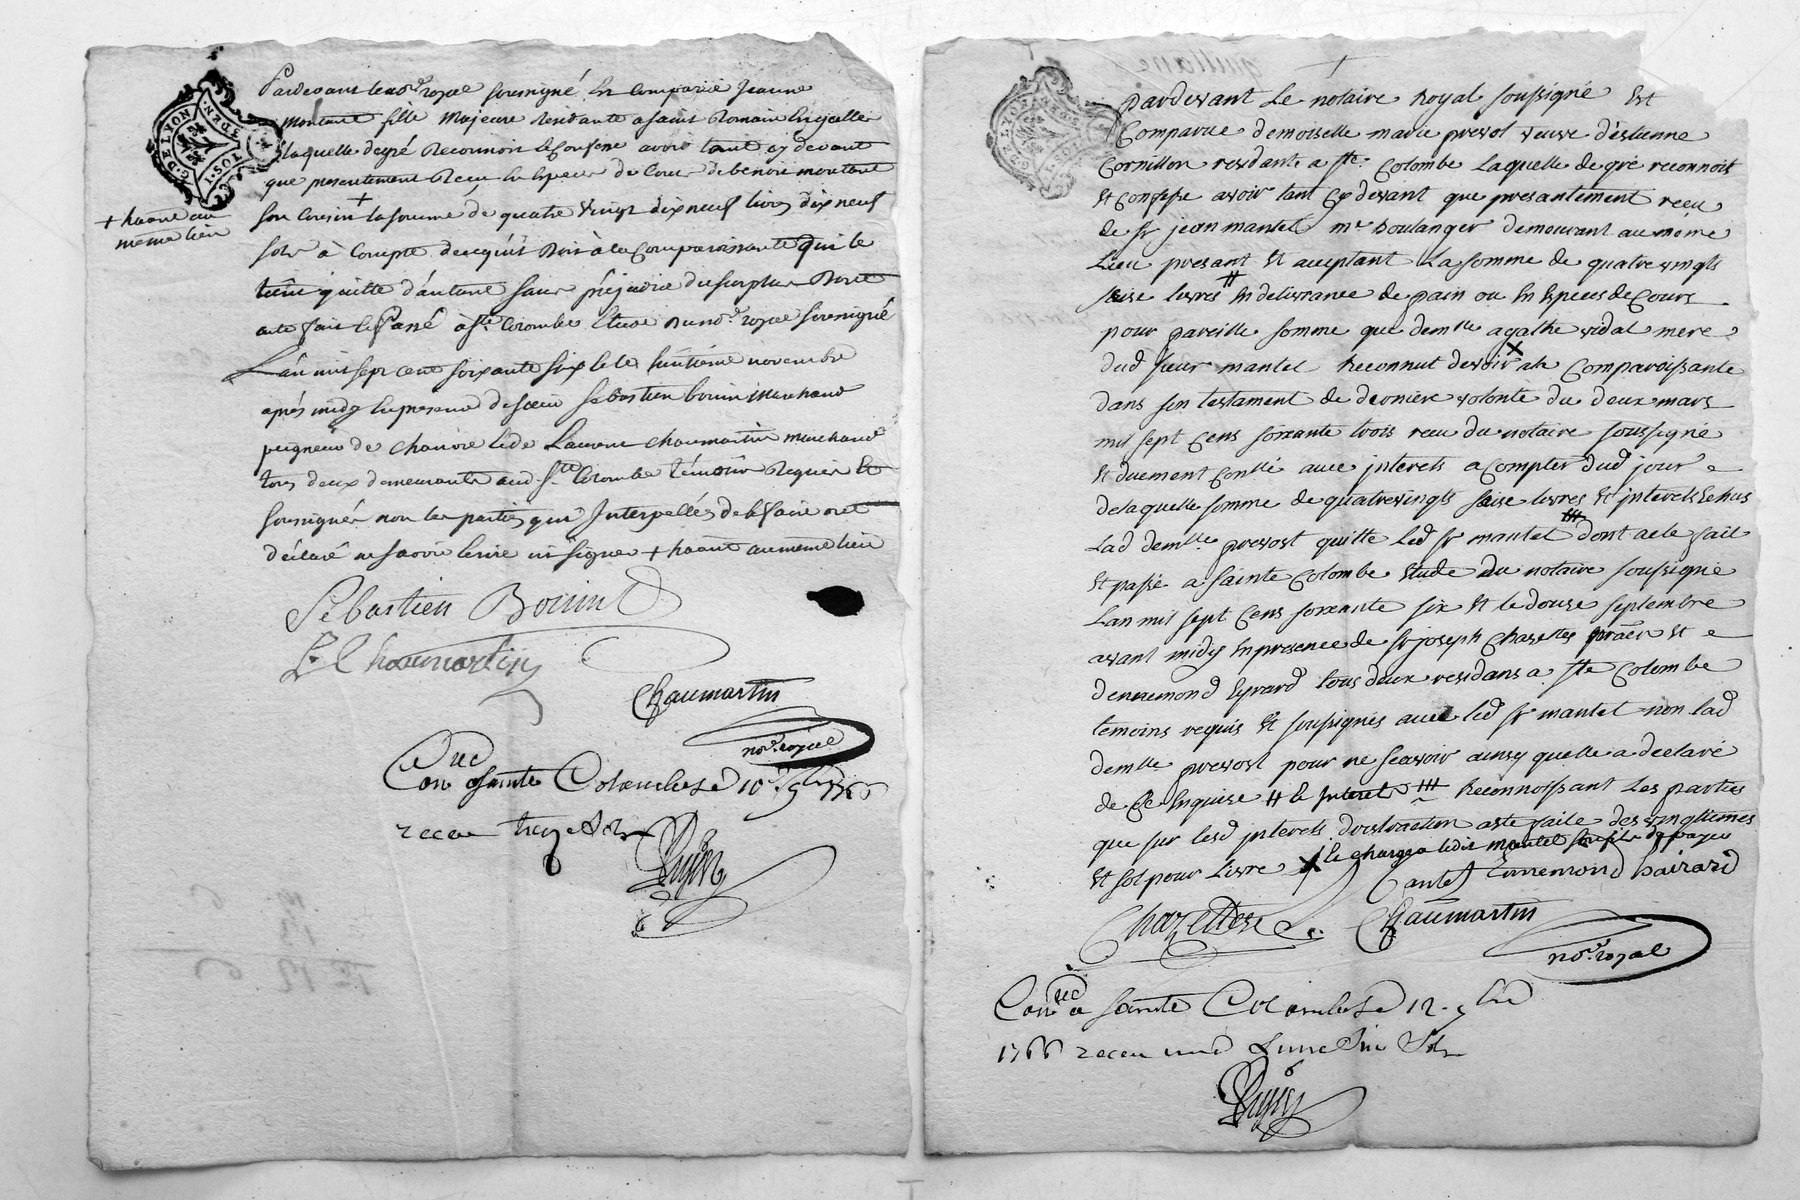 Pardevant le no.re royal soussigné Est Comparüe Jeanne
montant fille Majeure residante a saint Romain
laquelle de gré Reconnoit et Confesse avoir tant cy devant
que presentement Receu En Especes de Cours de benoit montant
son Cousin + la somme de quatre vingt dix neuf livres dix neuf
sols à Compte de ce qu'il Doit à la Comparoissante qui le
tient quitte d'autant sans préjudice du surplus Dont
acte fait et Passé à Ste. Colombe Etude Du no.re royal soussigné
L'an mil sept cent soixante six et le huitième novembre
après midy En presence de sieur Sébastien Marchand
peigneur de Chanvre et de Laurent Chaumartin marchand
tous deux demeurants aud. Ste. Colombe témoins Requis Et
soussignés non les parties qui Interpellées de le faire ont
déclaré ne savoir Ecrire ni signer +
+
même lieu
au même lieu
Sébastien
Chaumartin
Chaumartin
no.re royal
Con.lé a Sainte Colombe Le 10
receu treize Sols
G. DE LYON
Pardevant Le notaire Royal soussigné Est
Comparue demoiselle marie prevot veuve d'estienne
Cornillon residante a Ste. Colombe Laquelle de gré reconnoit
Et Confesse avoir tant Cy devant que presantement receu
de Sr jean mantel me Boulanger demourant au même
Lieu presant Et acceptant La somme de quatrevingts
saise livres # En delivrance de pain ou En Especes de Cours
pour pareille somme que demlle agathe vidal mere
dud sieur mantel Reconnut devoir X a la Comparoissante
dans son testament de derniere volonté du deux mars
mil sept Cens soixante trois receu du notaire soussigné
Et duement Conllé avec jnterets a Compter dud jour
de laquelle somme de quatrevingts saise livres Et jnterets Echus
Lad demlle prevost quitte Led Sr mantel dont acte fait
Et passé a Sainte Colombe Etude du notaire soussigné
Lan mil sept Cens soixante six Et le douse septembre
avant midy En presence de Sr joseph Charettes Et
dennemond Eyrard tous deux residans a Ste Colombe
temoins requis Et soussignés avec Led Sr mantel non Lad
demlle prevost pour ne sçavoir ainsy quelle a declaré
de Ce Enquise # Reconnoissant Les parties
que sur lesd jnterets distraction a esté faite des vingtiemes
Et sol pour Livre X
Ennemond hairard
Charettes
Chaumartin
no.re royal
Con.lé a Sainte Colombe Le 12
1766 receu une Livre Six Sols